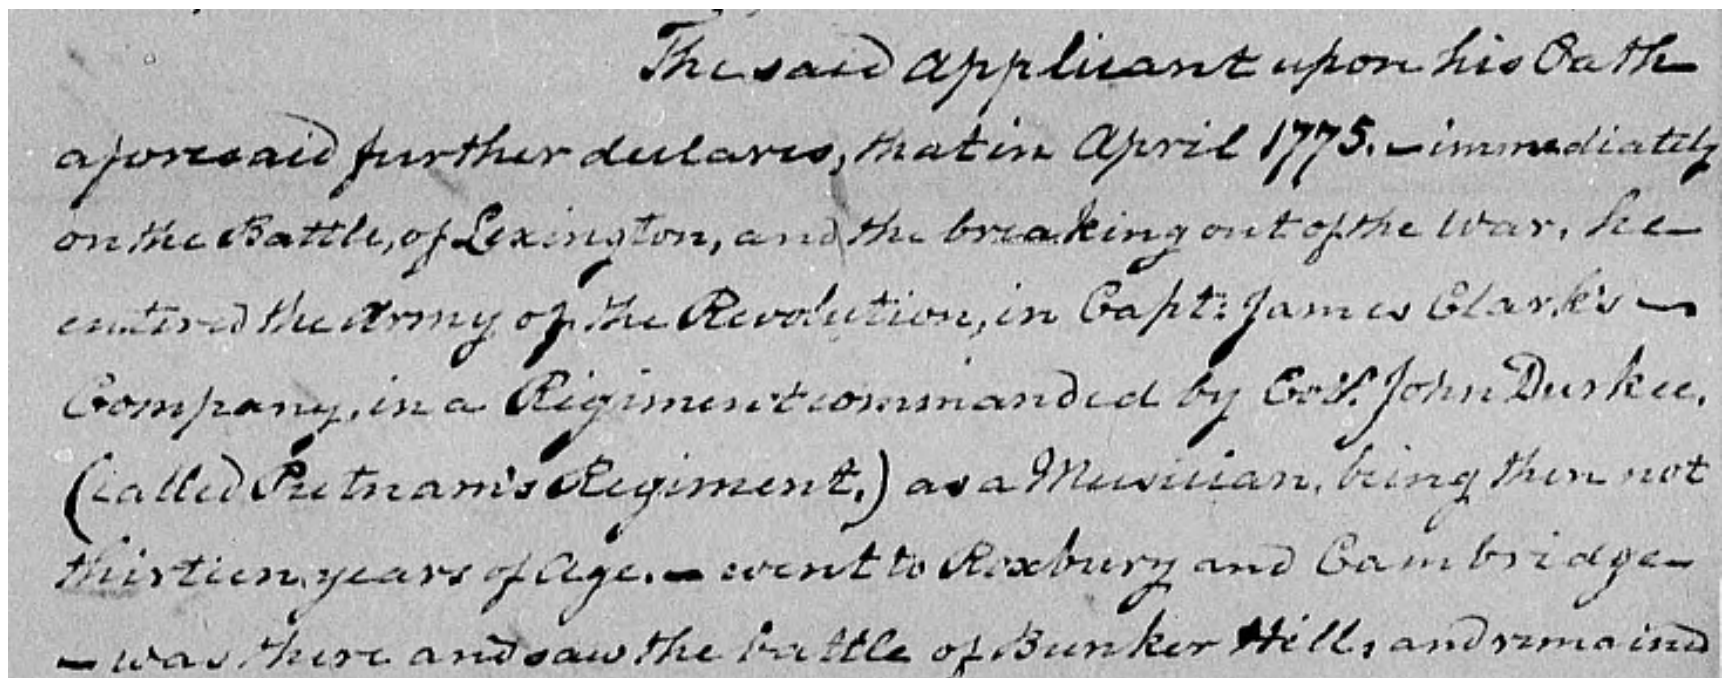 The said Applicant upon his Oath
aforesaid further declares, that in April 1775. – immediately
on the Battle, of Lexington, and the breaking out of the War, he
entered the Army of the Revolution, in Capt: James Clark's –
Company, in a Regiment commanded by Col. John Durkee,
(called Putnam's Regiment,) as a Musician, being then not
thirteen, years of Age. – went to Roxbury and Cambridge
– was there and saw the battle of Bunker Hill, and remained